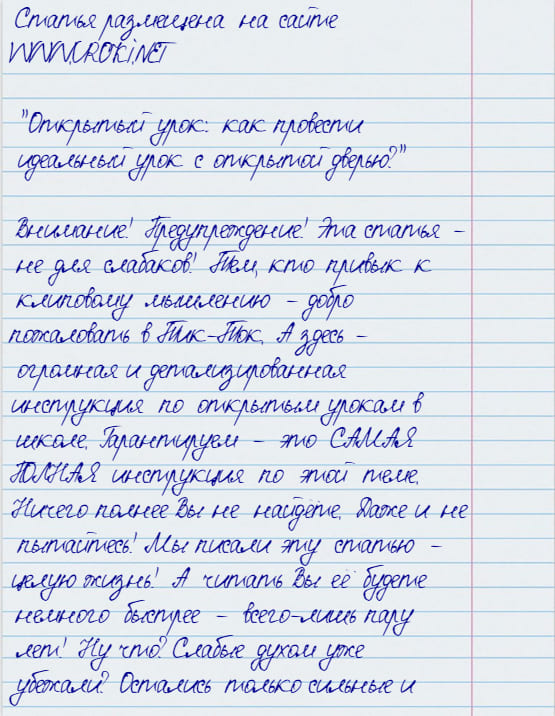 Статья размещена на сайте
WWW.UROKI.NET
"Открытый урок: как провести
идеальный урок с открытой дверью?"
Внимание! Предупреждение! Эта статья –
не для слабаков! Тем, кто привык к
клиповому мышлению – добро
пожаловать в Тик-Ток. А здесь –
огромная и детализированная
инструкция по открытым урокам в
школе. Гарантируем – это САМАЯ
ПОЛНАЯ инструкция по этой теме.
Ничего полнее Вы не найдёте. Даже и не
пытайтесь! Мы писали эту статью –
целую жизнь! А читать Вы её будете
немного быстрее – всего-лишь пару
лет! Ну что? Слабые духом уже
убежали? Остались только сильные и